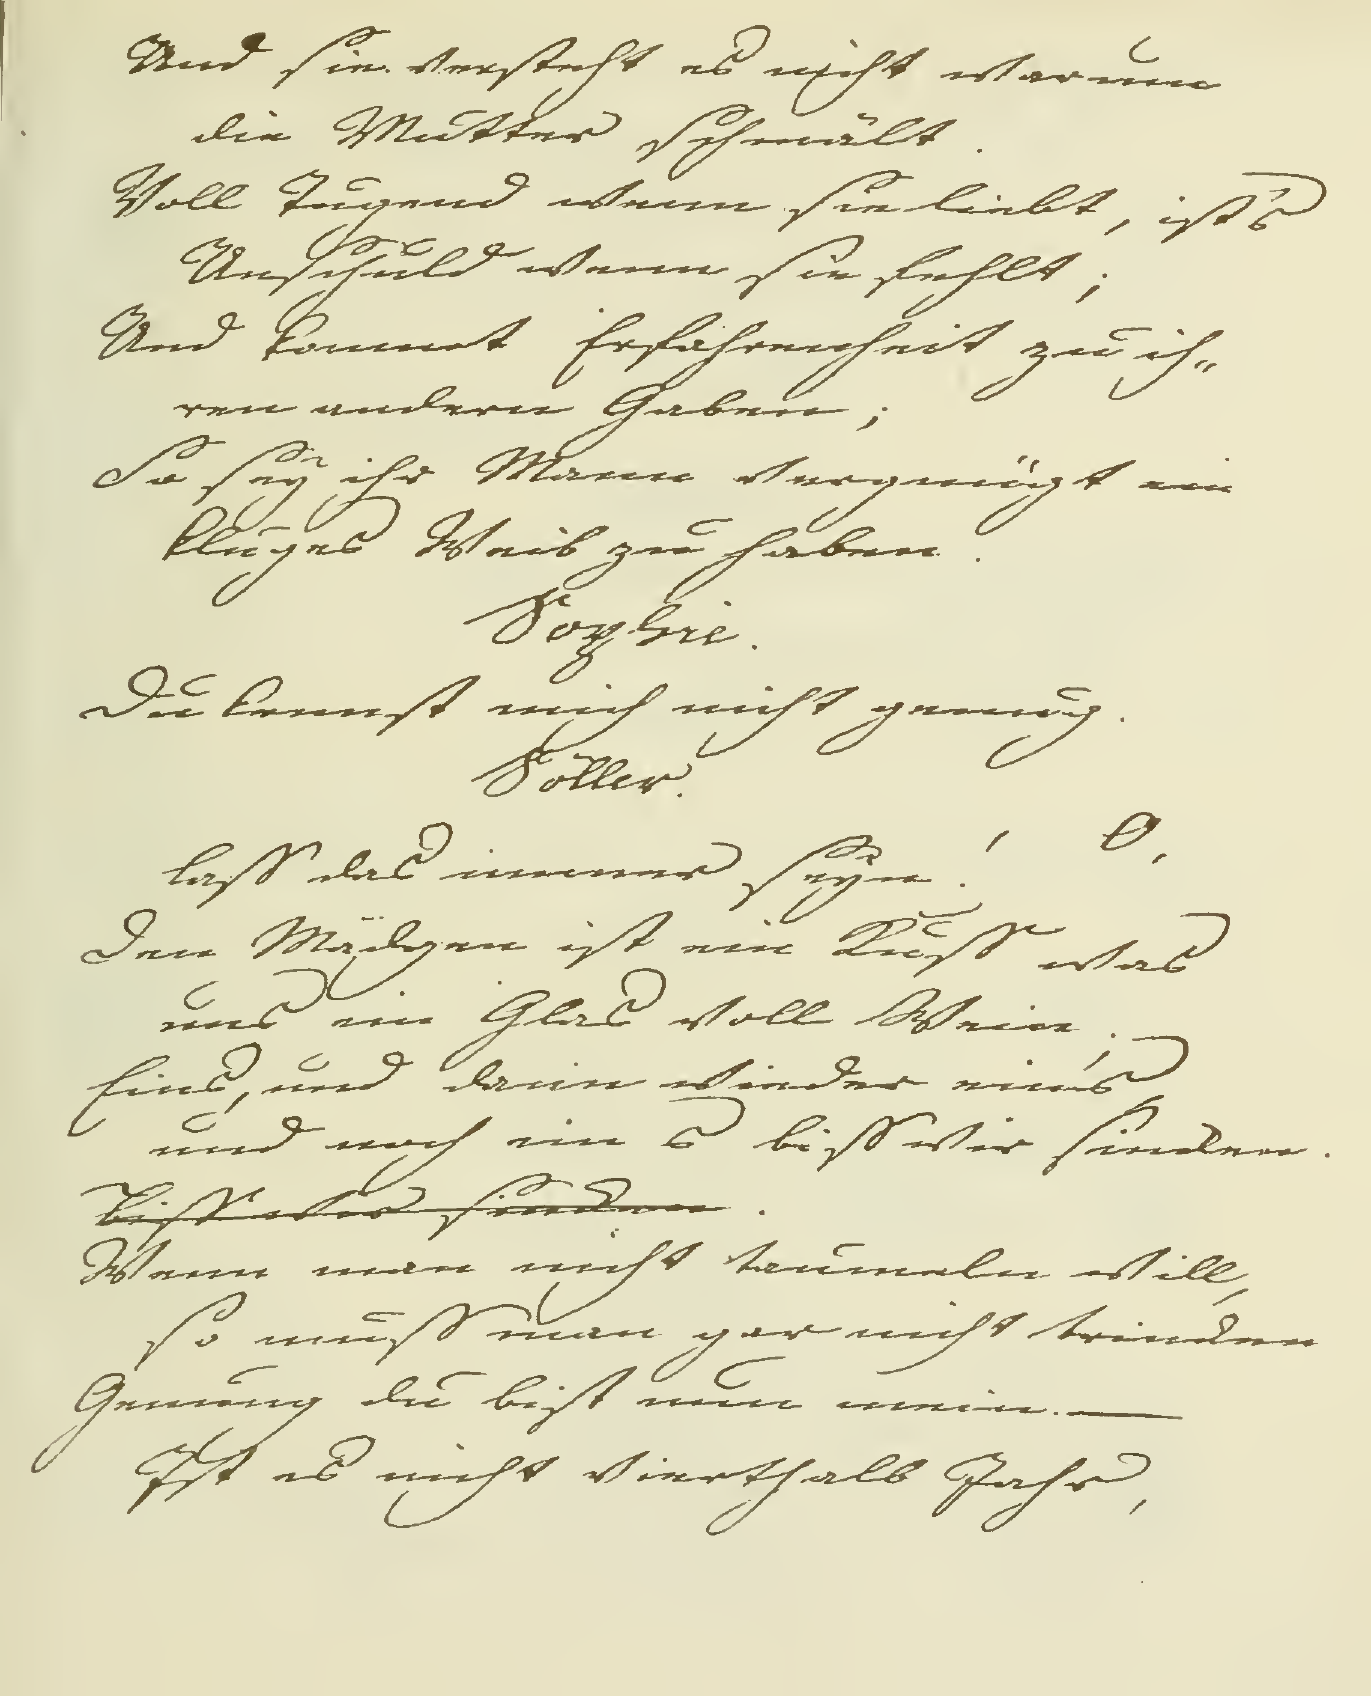 Und sie versteht es nicht warum
die Mutter schmält.
Voll Tugend wenn sie liebt, ists
Unschuld wenn sie fehlt;
Und kommet Erfahrenheit zu ih„
ren andern Gaben;
So sey ihr Mann vergnügt ein
kluges Weib zu haben.
Sophie.
Du kennst mich nicht genug.
Söller.
O,
lass das immer seyn!
Den Mädgen ist ein Kuss was
uns ein Glas voll Wein,
Eins, und dann wieder eins
und noch ein s biss wir sincken.
biss wir sincken.
Wenn man nicht taumeln will,
so muss man gar nicht trincken
Genung du bist nun mein. —
Ist es nicht vierthalb Jahr,